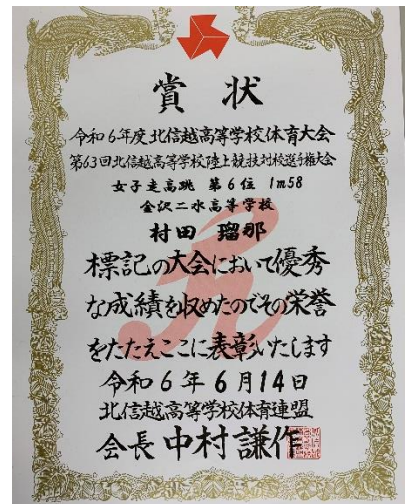 賞状
令和6年度北信越高等学校体育大会
第63回北信越高等学校陸上競技対校選手権大会
女子走高跳 第6位 1m58
金沢二水高等学校
村田 瑠那
標記の大会において優秀
な成績を収めたのでその栄誉
をたたえここに表彰いたします
令和6年6月14日
北信越高等学校体育連盟
会長 中村謙作